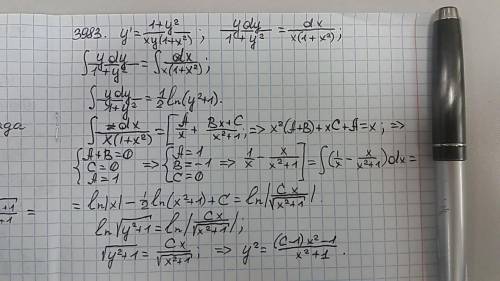 3983. y' = (1+y²)/(xy(1+x²)); ydy/(1+y²) = dx/(x(1+x²));
∫ydy/(1+y²) = ∫dx/(x(1+x²));
∫ydy/(1+y²) = ½ln(y²+1).
∫dx/(x(1+x²)) = [A/x + (Bx+C)/(x²+1); => x²(A+B)+xC+A=x; =>
{A+B=0 C=0 A=1 => {A=1 B=-1 C=0 => 1/x - x/(x²+1)] = ∫(1/x - x/(x²+1))dx =
= ln|x| - ½ln(x²+1)+C = ln|Cx/√(x²+1)|.
ln√(y²+1) = ln|Cx/√(x²+1)|;
√(y²+1) = Cx/√(x²+1); => y² = ((C-1)x²-1)/(x²+1).